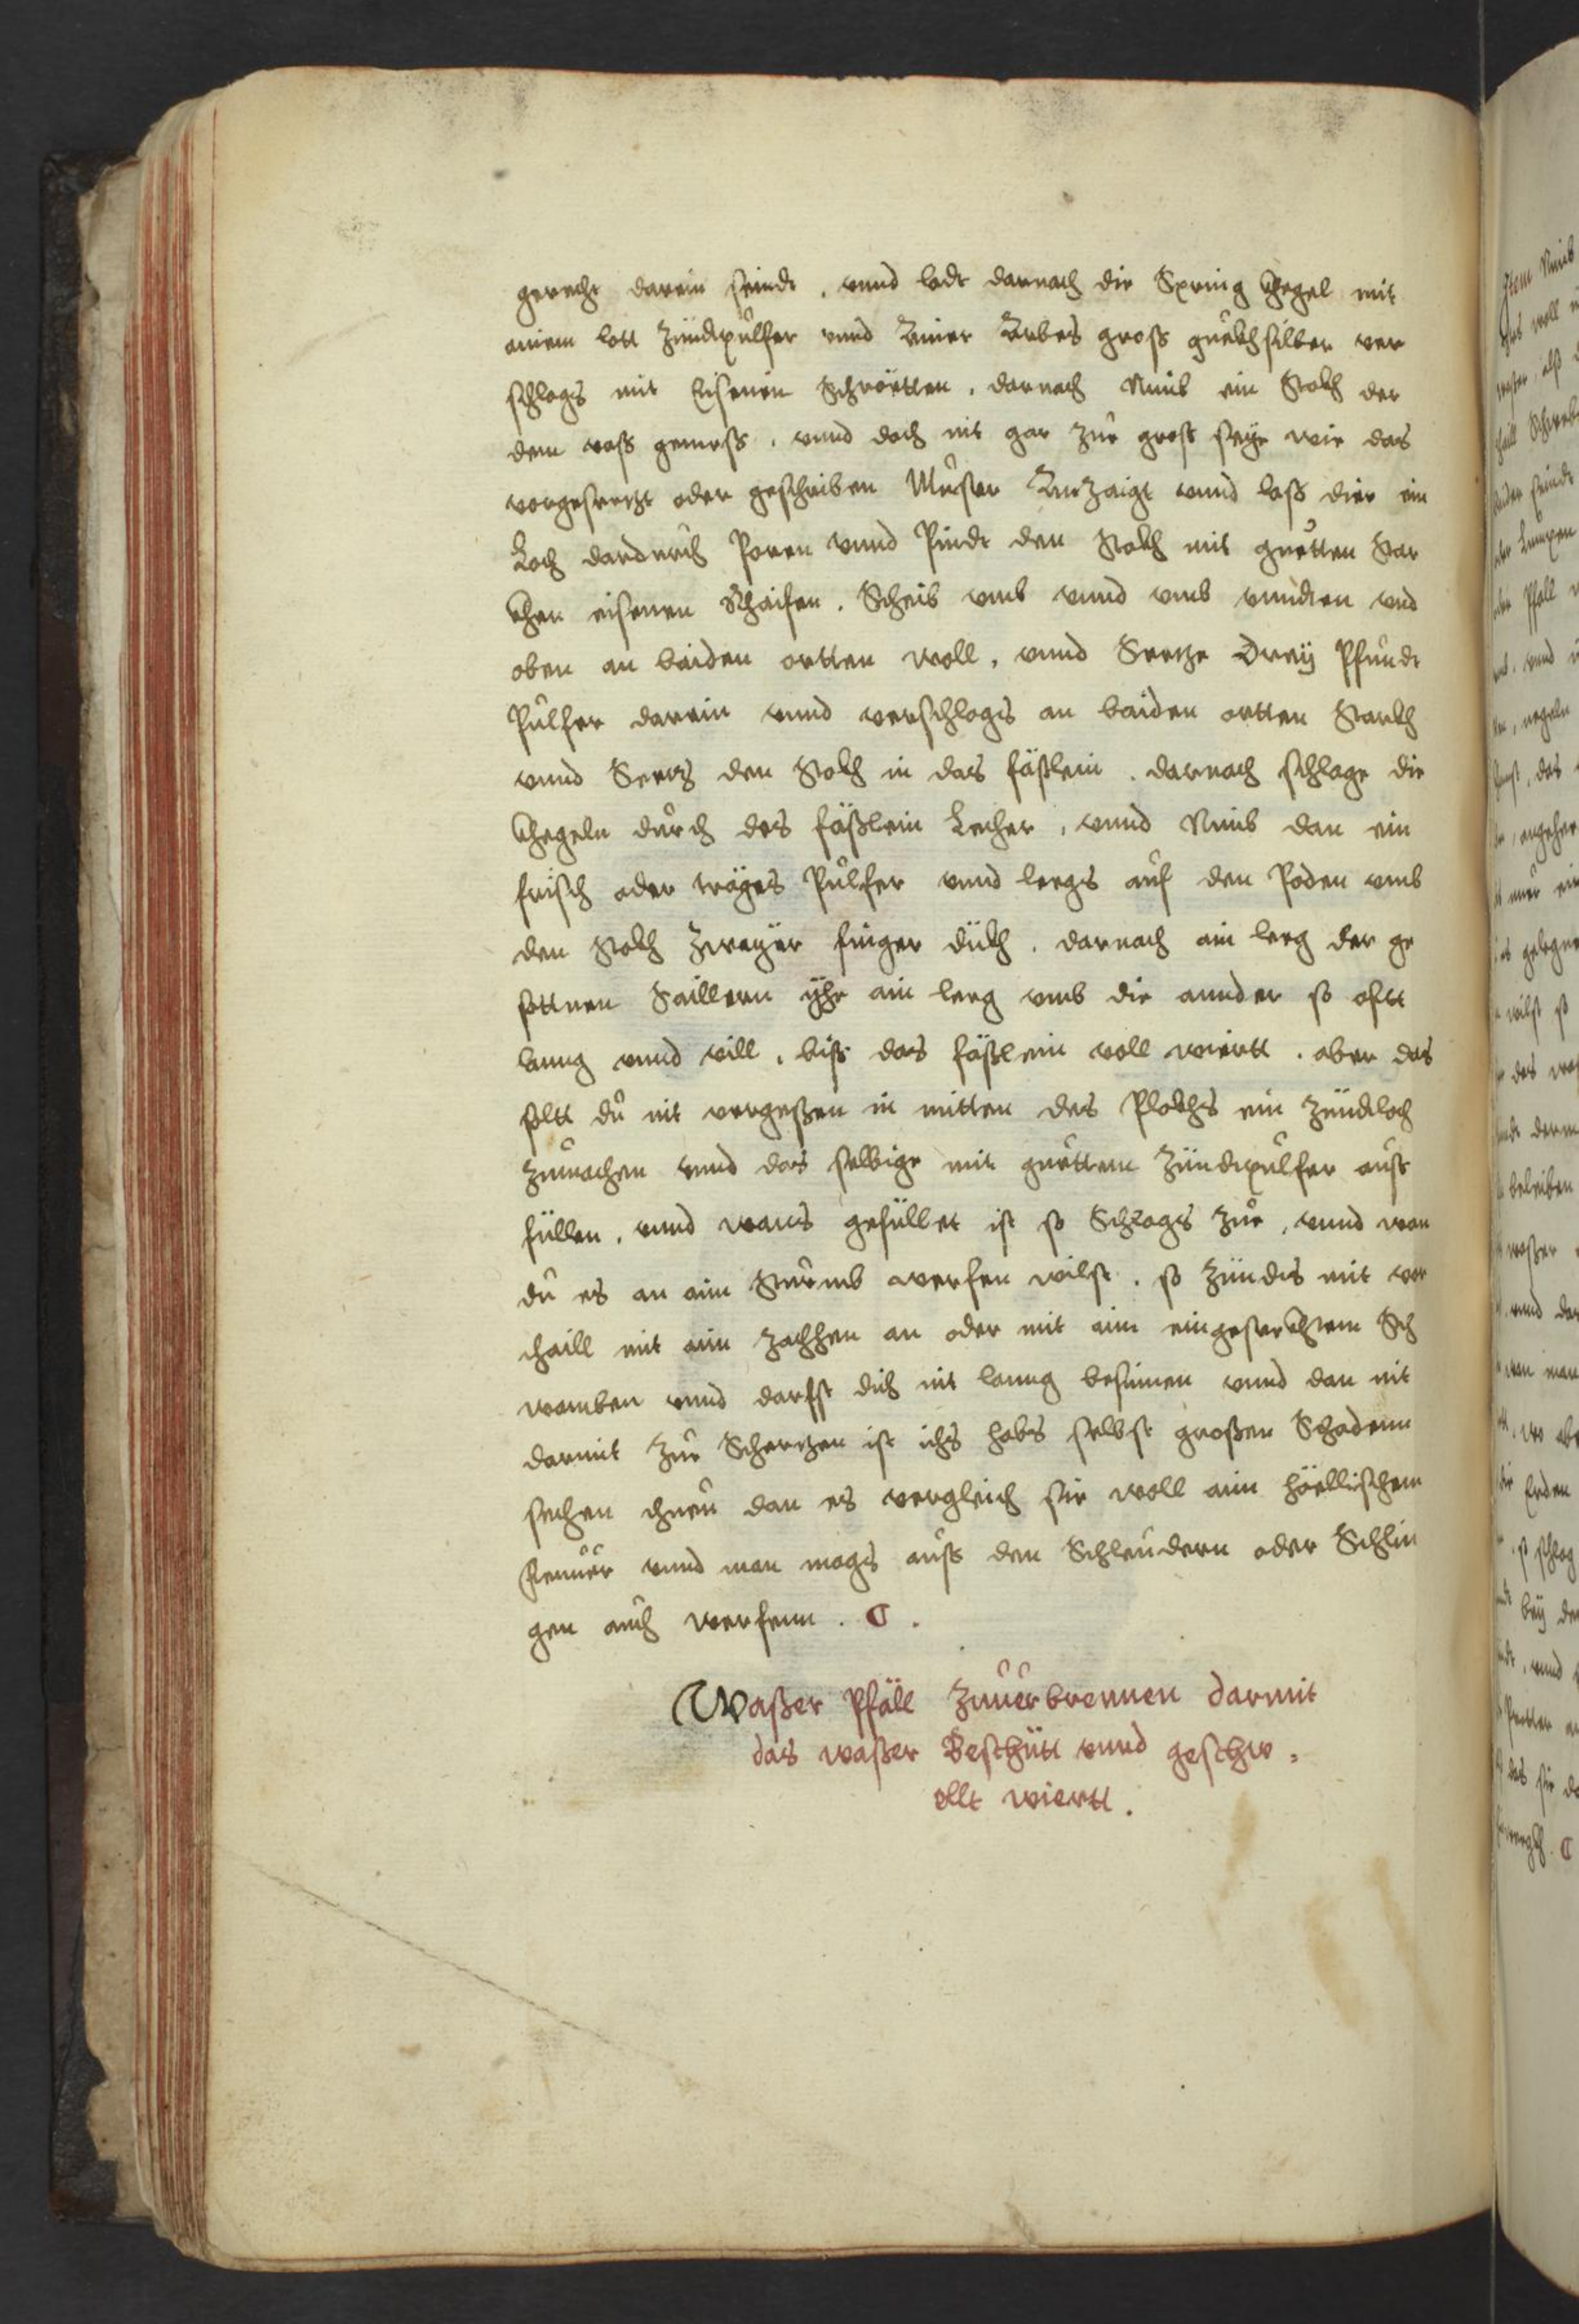 gerecht darein seindt . vnnd ladt darnach die Spring Khegel mit
ainem lott Zündtpulfer vnnd Ainer Arbes gross quekhsilber ver
schlags mit Eisenen Schrötten . darnach Nimb ein Stokh der
dem vass gemess . vnnd doch nit gar Zue gross seye wie das
vorgesetzt oder geschriben Muster Anzaigt vnnd lass dier ein
Loch dardurch Poren vnnd Pindt den Stokh mit guetten Star
khen eisenen Rhaifen . Scheib vmb vnnd vmb vnndten vnd
oben an baiden ortten woll . vnnd Seetze Drey Pfundt
Pulfer darein vnnd verschlags an baiden ortten Starkh
vnnd Seetz den Stokh in das fäßlein . darnach schlage die
Khegeln durch des fäßlein Lecher , vnnd Nimb dan ein
frisch oder träges Pulfer vnnd leegs auf den Poden vmb
den Stokh Zwayer finger dükh . darnach ain leeg der ge
sottnen Saillern yhe ain leeg vmb die annder so oftt
lanng vnnd vill . biß das fäßlein voll wiertt . aber das
soltt du nit vergeßen in mitten des Plokhs ein Zündtloch
Zumachen vnnd das selbige mit guettem Zündtpulfer auß
füllen . vnnd wans gefüllet ist so Schlags Zue , vnnd wan
du es an ain Sturmb werfen wilst . so Zündts mit vor
thaill mit ain Zachhen an oder mit ain eingesterkhtem Sch
wamben vnnd darfst dich nit lanng besinnen vnnd dan nit
darmit Zue Schertzen ist ichs habs selbst großen Schadenn
sechen thuen dan es vergleich sie woll ain höellischem
feuuer vnnd man mags auß den Schleudern oder Schlin
gen auch werfenn . C .
Waßer Pfäll Zuuerbrennen darmit
das waßer Beschütt vnnd geschw ,
ellt wiertt .